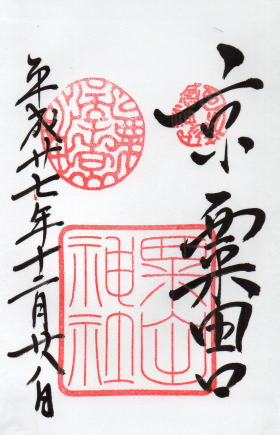 京 粟田口
粟田神社
平成廿七年十二月廿八日